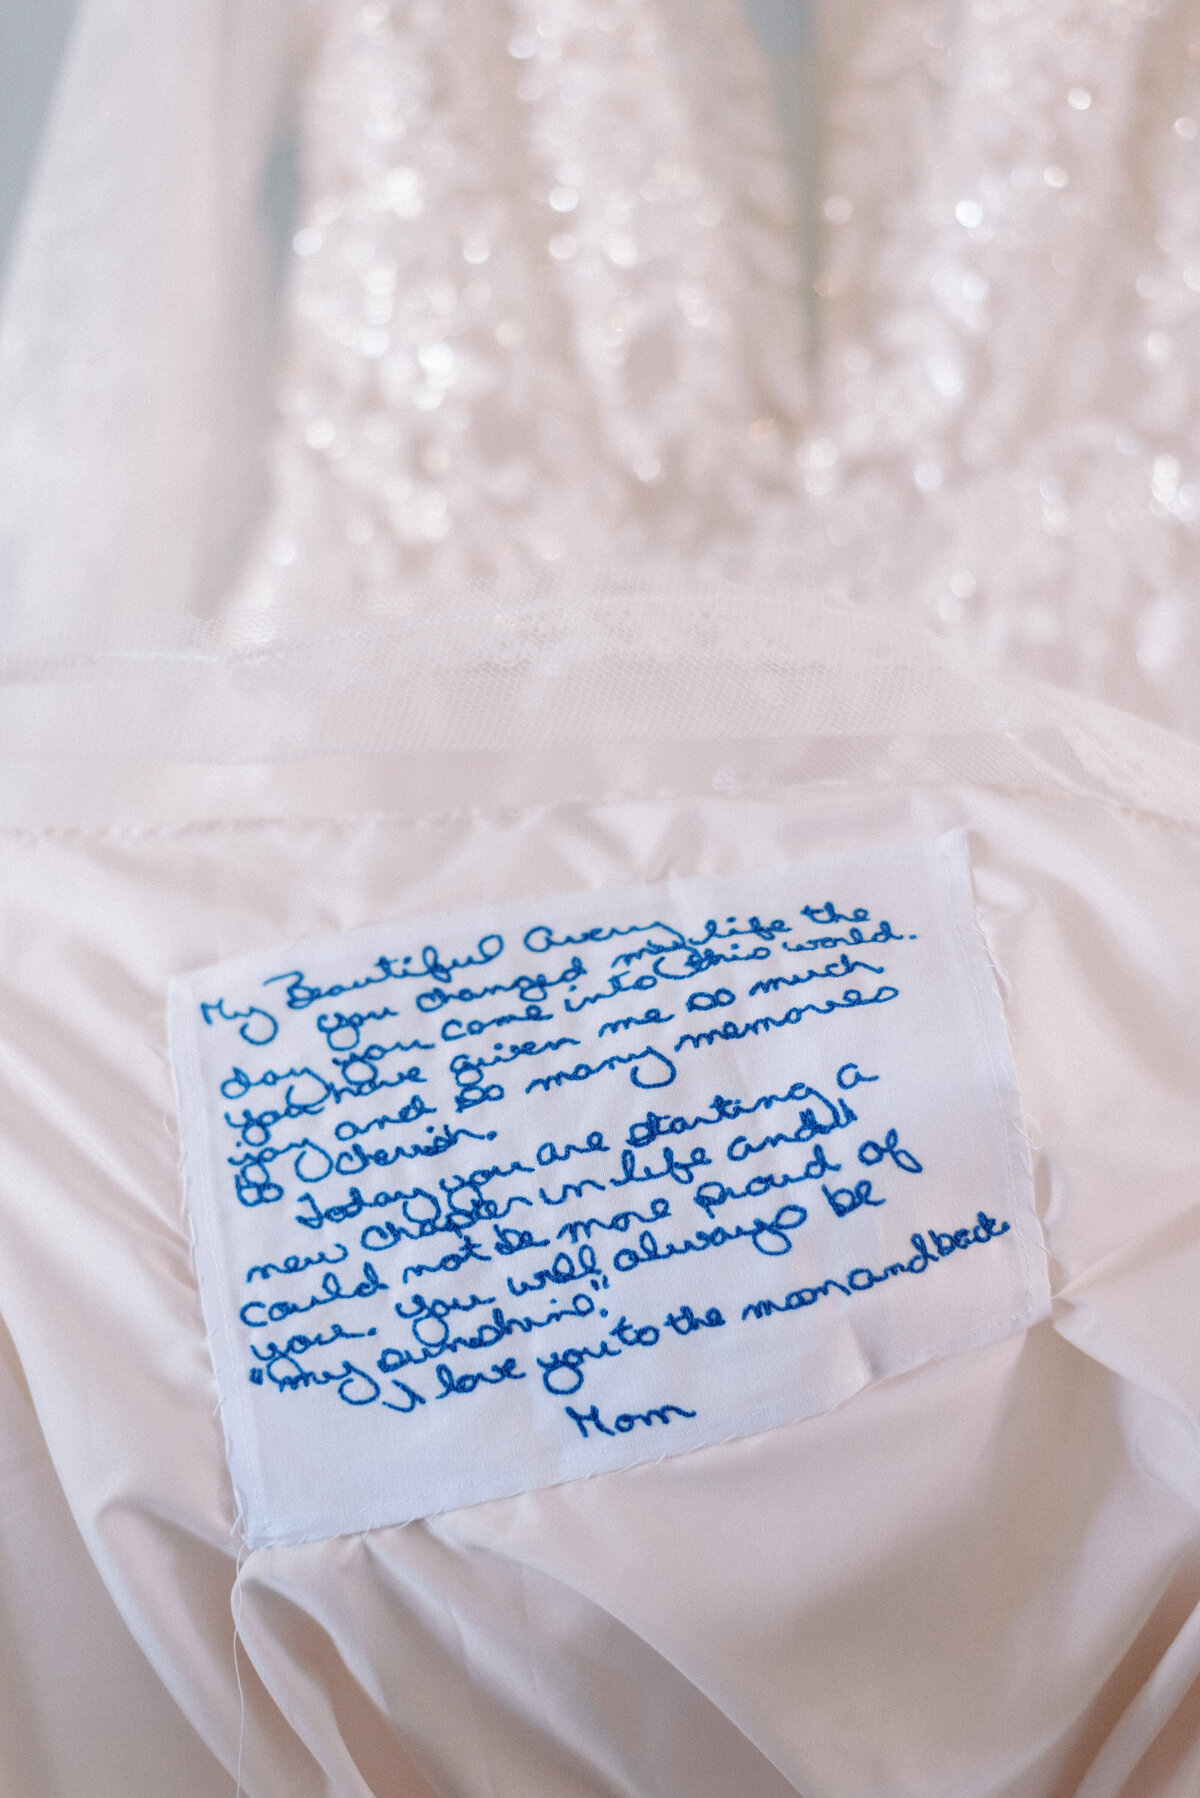 My Beautiful Avery
you changed my life the
day you come into this world.
you have given me so much
joy and so many memories
to cherish.
Today you are starting a
new chapter in life and I
could not be more proud of
you. you will always be
"my sunshine".
I love you to the moon and back.
Mom